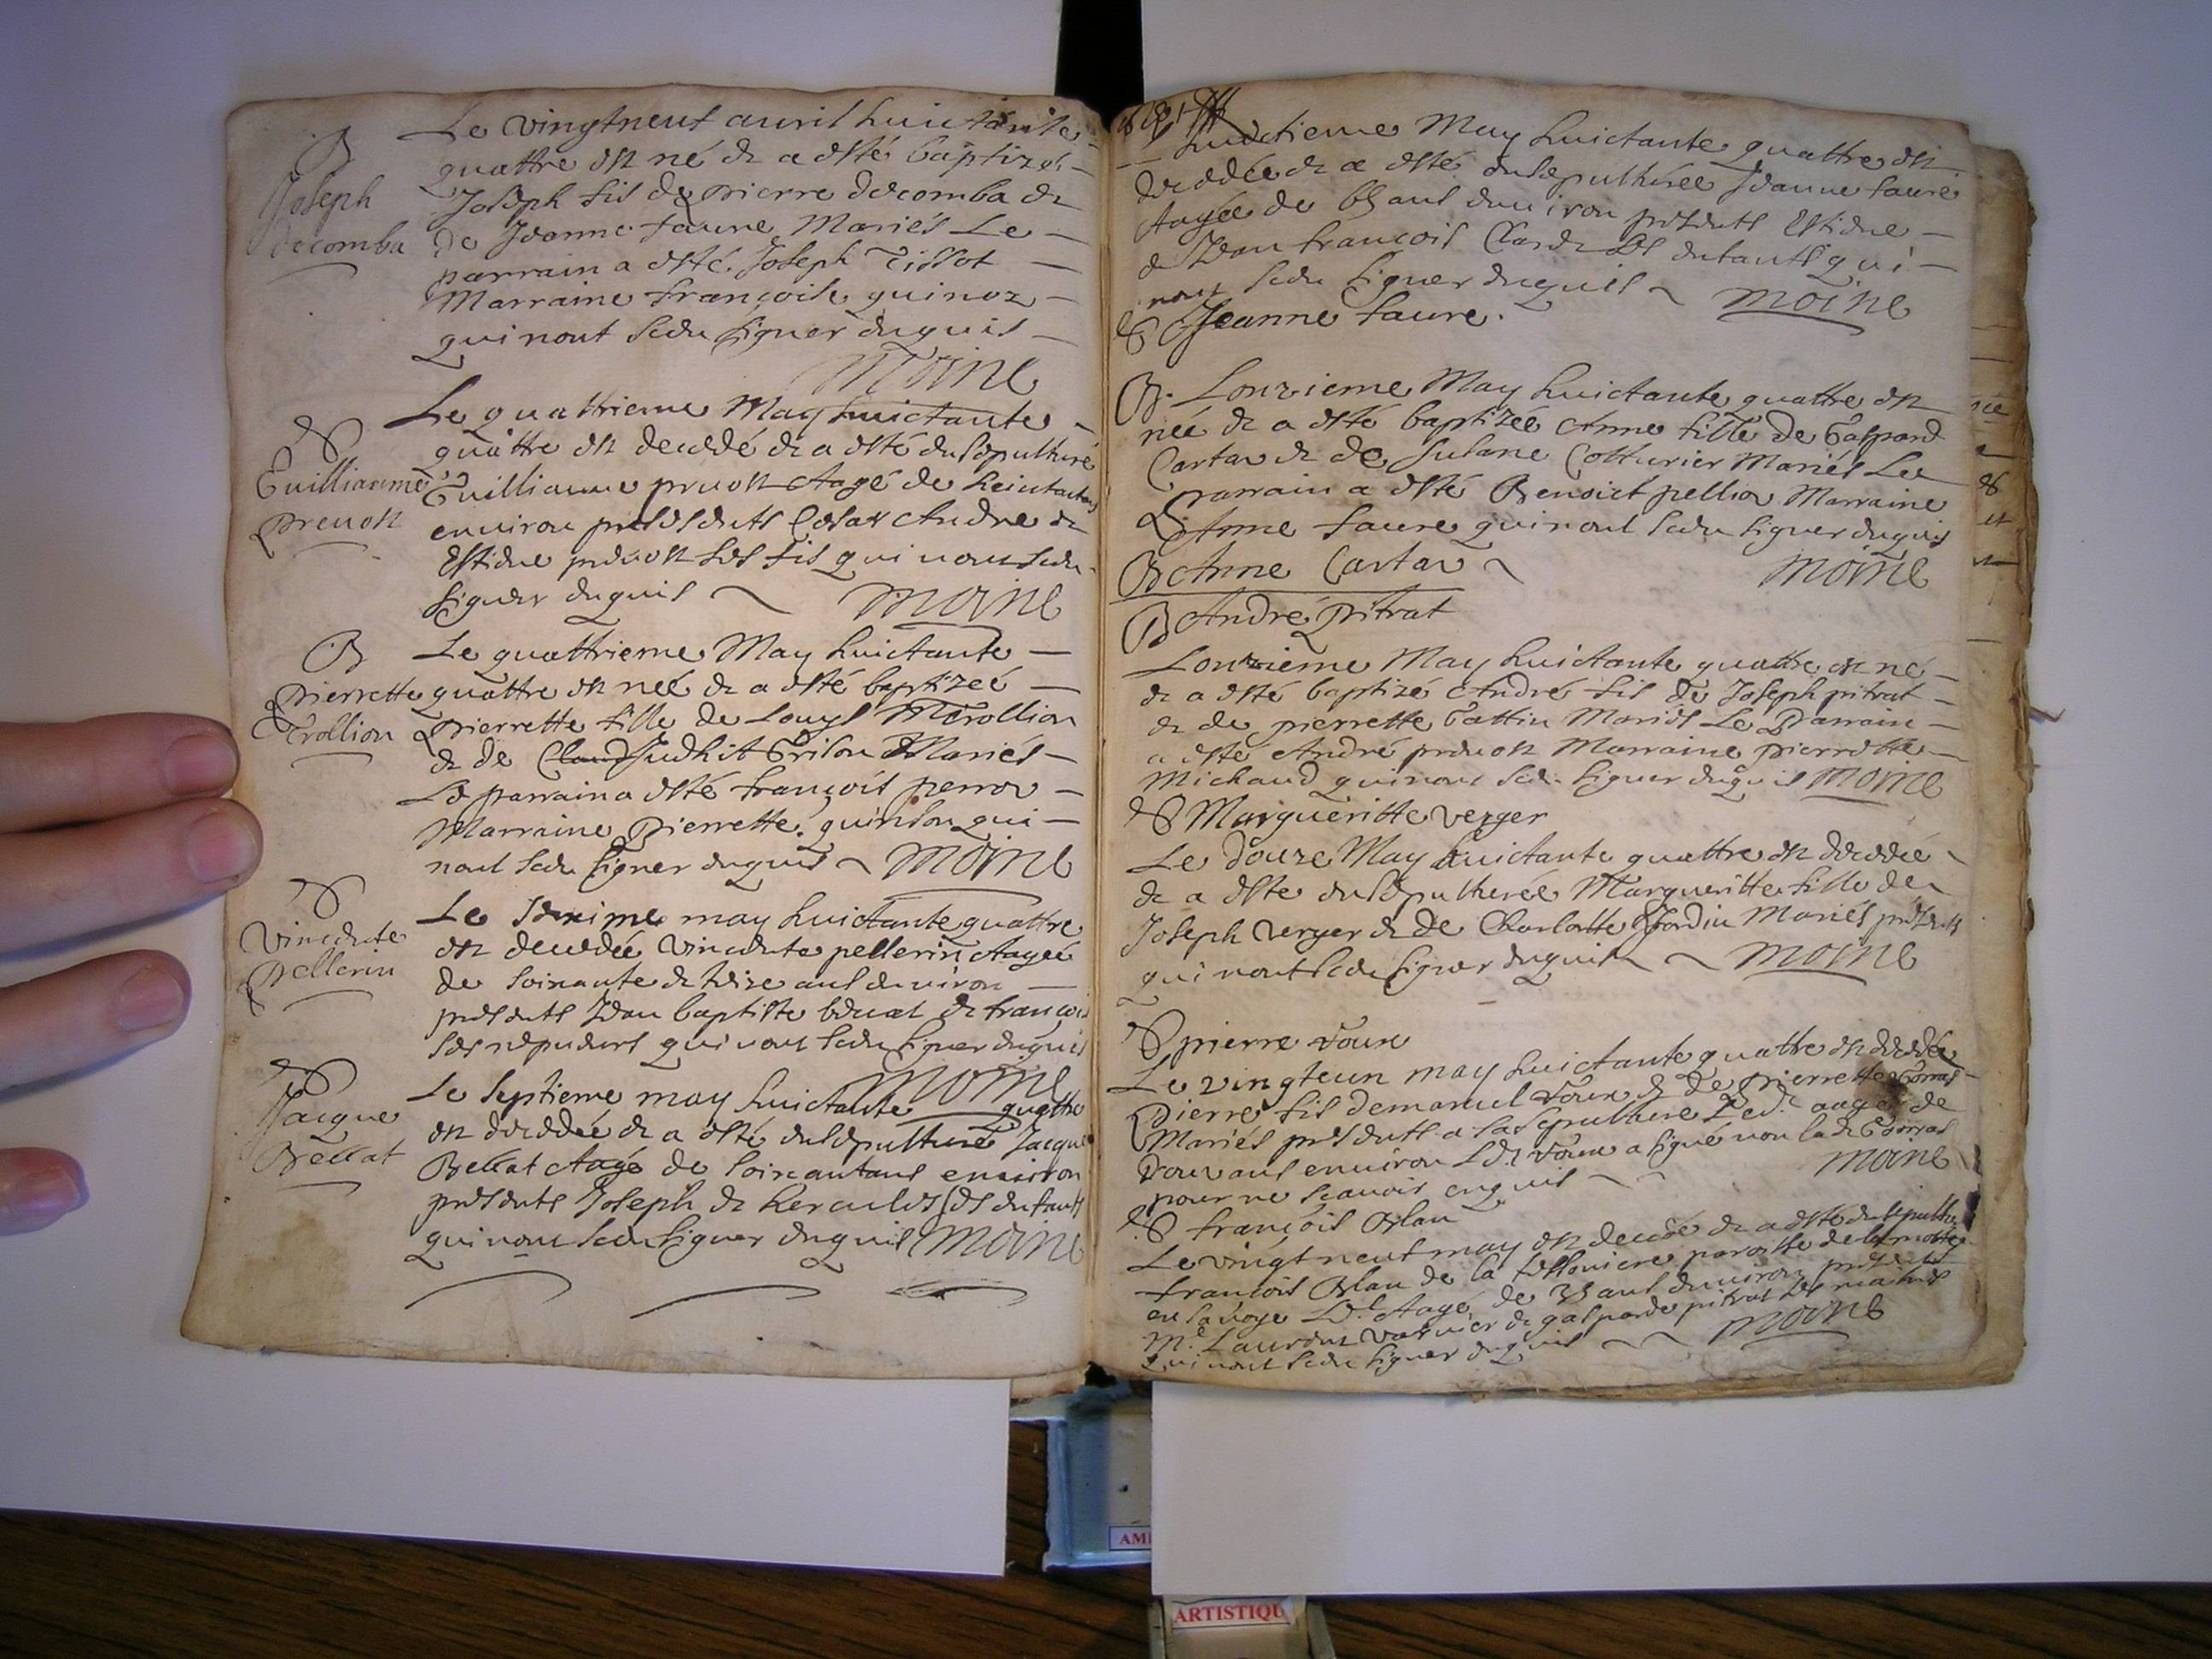 B
Joseph
decomba
Le vingtneuf auril huictante
quattre est né & a esté baptizé
Joseph fils de pierre decomba &
de Jeanne faure Mariés Le
parrain a esté Joseph Tissot
Marraine françoise quinoz
qui nont sceu signer enquis
Moine
S
Guilliaume
Preuost
Le quattrieme May huictante
quattre est decedé & a esté ensepulturé
Guilliaume preuost Aagé de
enuiron presents Cesar Andre &
Estiene preuost ses fils qui nont sceu
signer enquis Moine
B
Pierrette
Trollion
Le quattrieme May huictante
quattre est neé & a esté baptizeé
pierrette fille de Louys Trollion
& de Judhit Grison Mariés
Le parrain a esté françois perror
Marraine Pierrette quinson qui
nont sceu signer enquis Moine
S
Vincente
Pellerin
Le may huictante quattre
est decedée Vincente pellerin Aageé
de soixante & treize ans enuiron
presents Jean baptiste & françois
ses nepueurs qui nont sceu signer enquis
Moine
S
Jacque
Bellat
Le septieme may huictante quattre
est decedé & a esté ensepulturé Jacque
Bellat Aagé de soixantans enuiron
presents Joseph & hercules ses enfants
qui nont sceu signer enquis Moine
huictieme May huictante quattre est
decedée & a esté ensepulturée Jeanne faure
Aagée de ans enuiron presents Estiene
& Jean françois ses enfants qui
nont sceu signer enquis Moine
S Jeanne faure.
B. Lonzieme May huictante quattre est
née & a esté baptizée Anne fille de Gaspard
Cartar & de Susane Cotturier Mariés Le
parrain a esté Benoict pellior Marraine
Anne faure qui nont sceu signer enquis
B Anne Cartar Moine
B André Pitrat
Lonzieme May huictante quattre est né
& a esté baptizé André fils de Joseph pitrat
& de pierrette Gattin Mariés Le Parrain
a esté André preuost Marraine pierrette
Michaud qui nont sceu signer enquis Moine
S Margueritte verger
Le douze May huictante quattre est decedée
& a esté ensepulturée Margueritte fille de
Joseph verger & de Charlotte Jordin Mariés presents
qui nont sceu signer enquis Moine
S pierre roux
Le vingteun may huictante quattre est decedé
Pierre fils demanuel roux & de pierrette Gorras
Mariés presents a sa sepulture Led.t aagé de
ans enuiron Led.t roux a signé non lad. Gorras
pour ne scauoir enquis Moine
S françois Blan
Le vingtneuf may est decedé & a esté ensepulturé
françois Blan de la paroisse de la motte
en Sauoye Aagé de 35 ans enuiron presents
M.e Laurens & gasparde pitrat ses maitres
qui nont sceu signer enquis Moine
AMI
ARTISTIQU